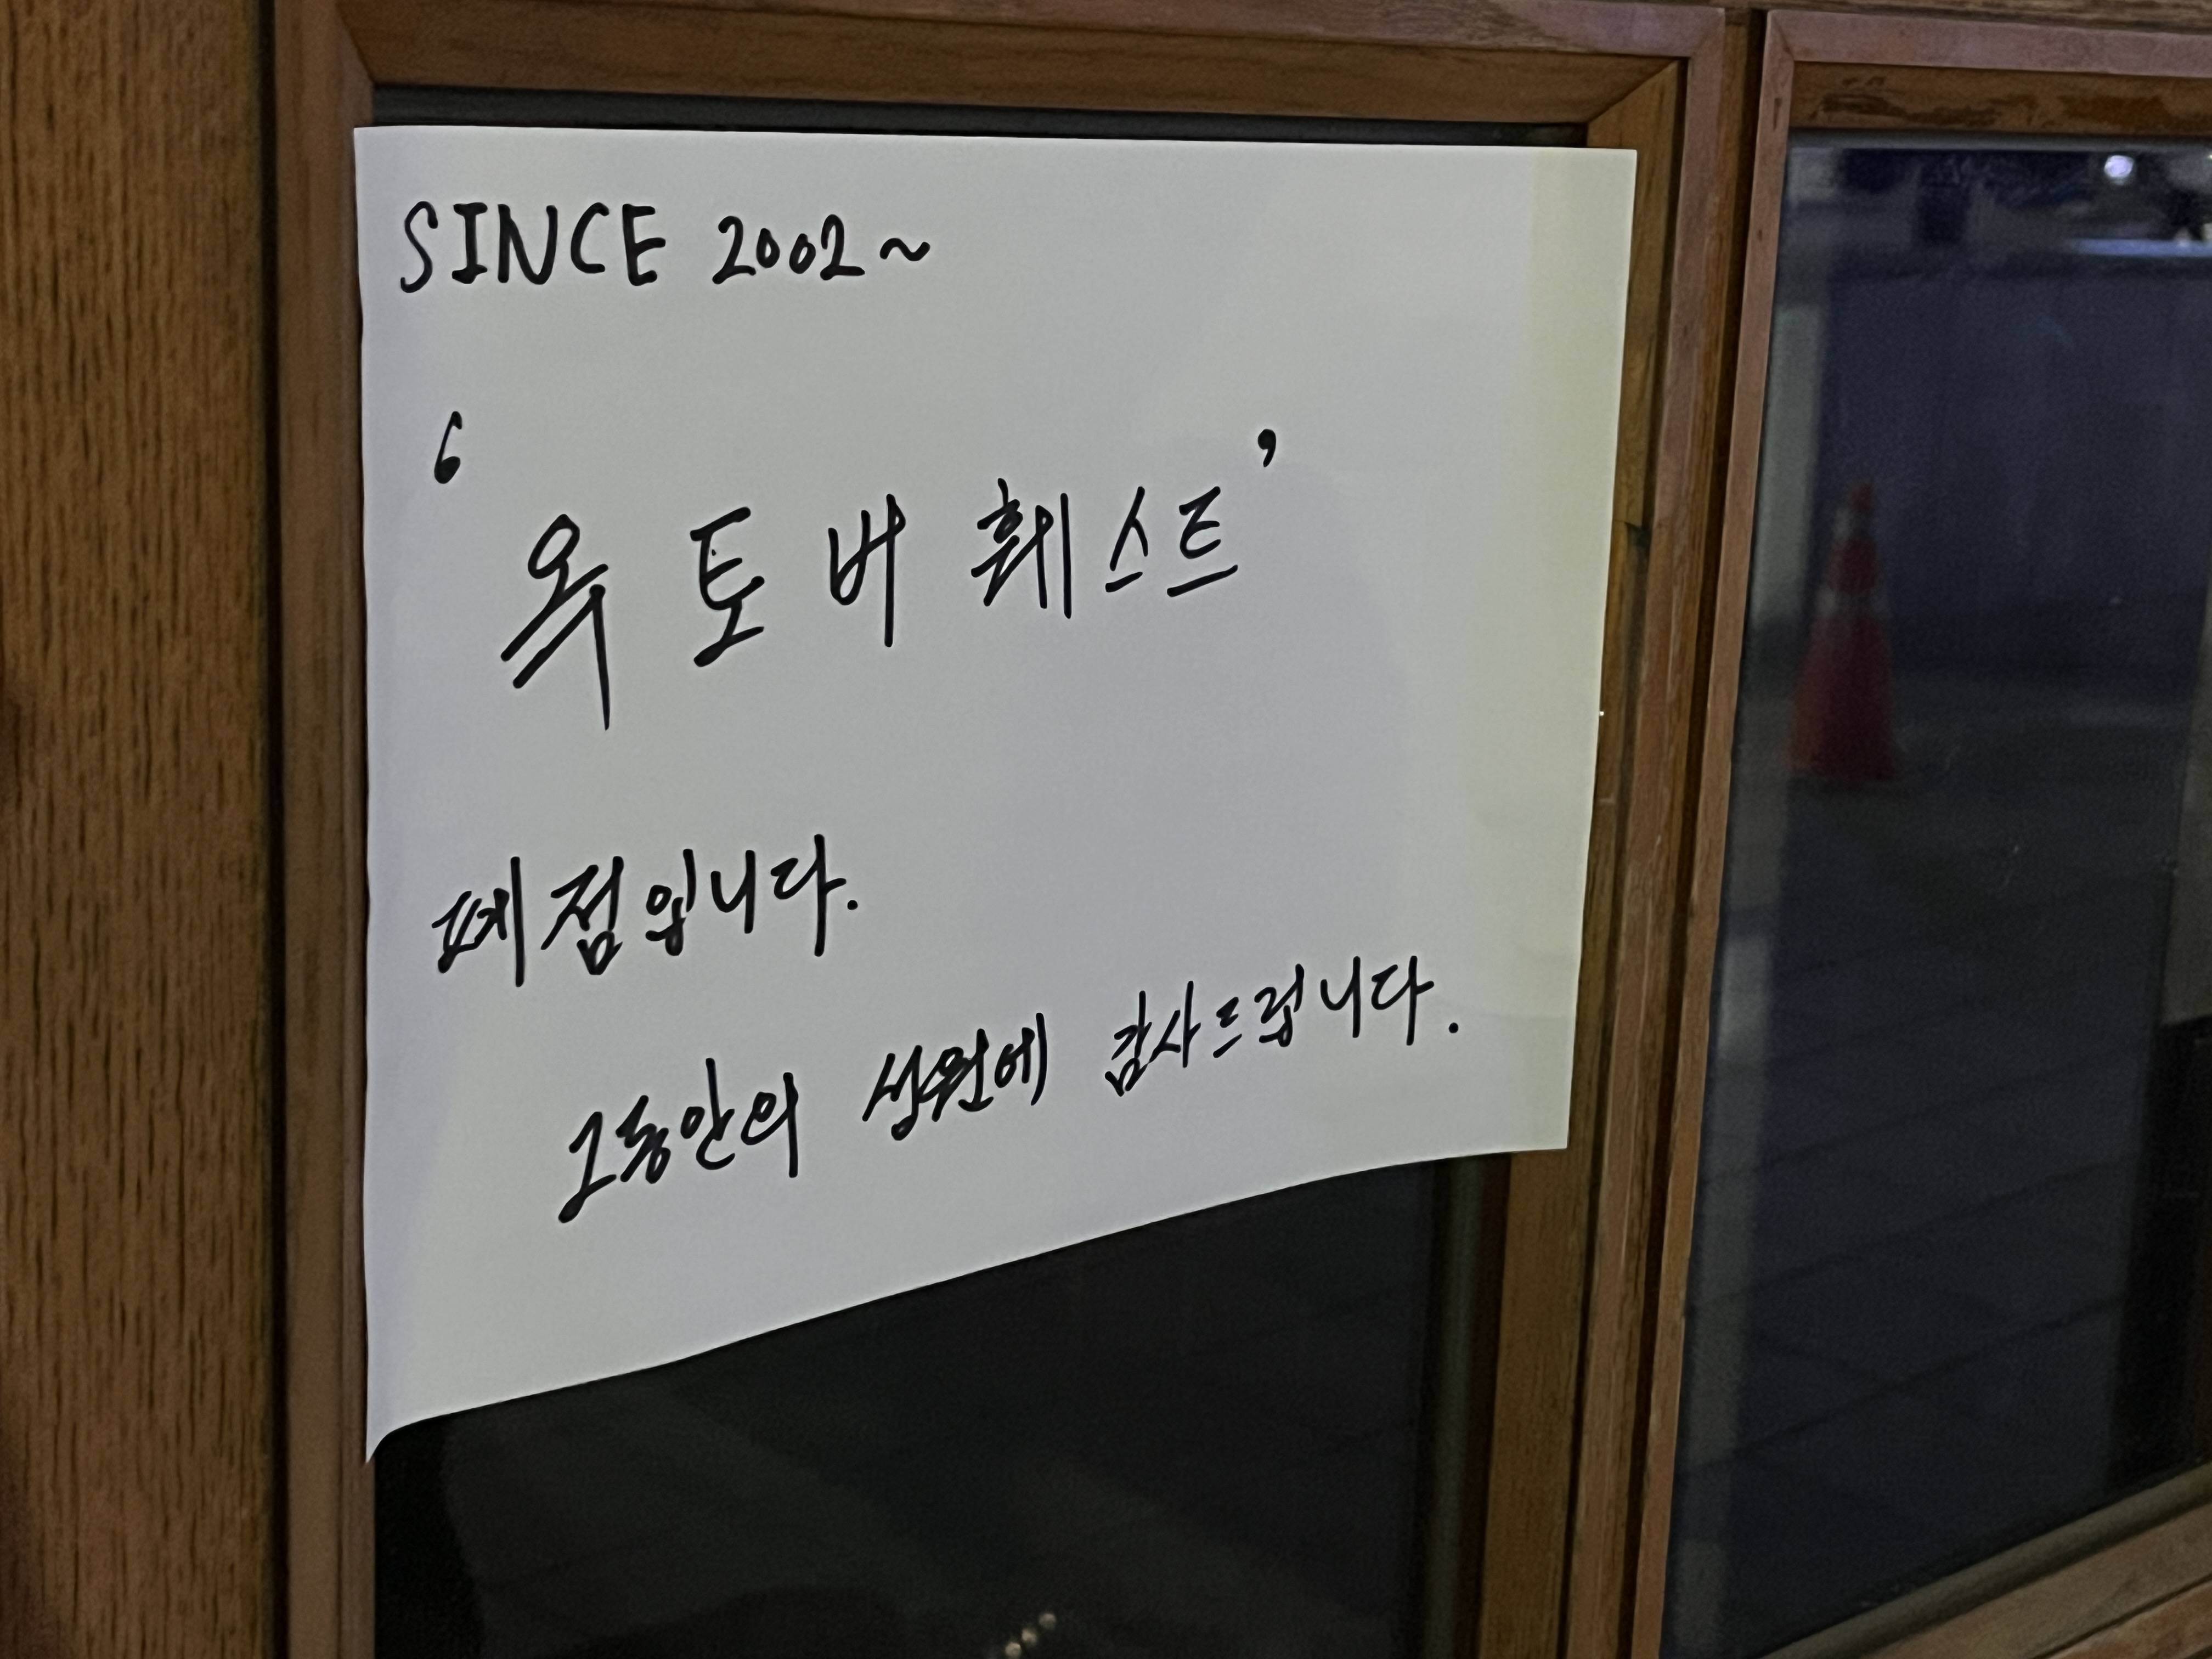 SINCE 2002~
'옥토버훼스트'
폐점입니다.
그동안의 성원에 감사드립니다.